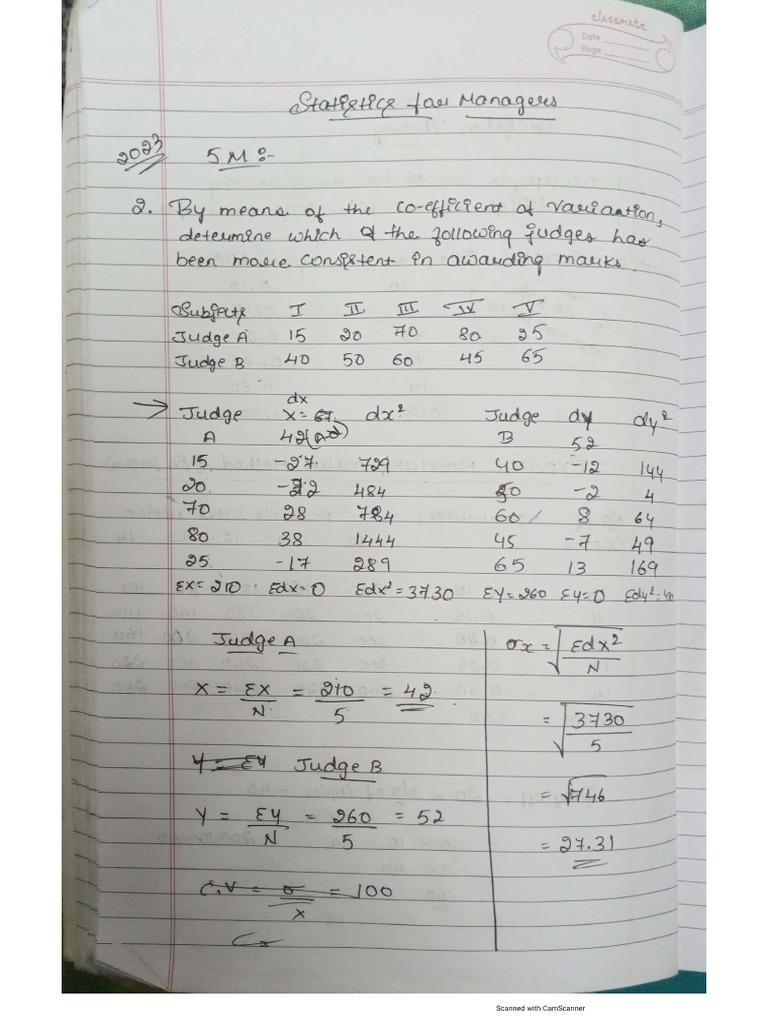 classmate
Date
Page
Statistics for Managers
2023
5M :-
2. By means of the co-efficient of variation,
determine which of the following judges has
been more consistent in awarding marks.
Subjects I II III IV V
Judge A 15 20 70 80 25
Judge B 40 50 60 45 65
→ Judge dx x = dx² Judge dy dy²
A 42 B 52
15 -27 729 40 -12 144
20 -22 484 50 -2 4
70 28 784 60 8 64
80 38 1444 45 -7 49
25 -17 289 65 13 169
Σx = 210 Σdx = 0 Σdx² = 3730 ΣY = 260 Σy = 0 Σdy² =
Judge A
X = ΣX/N = 210/5 = 42
Y = ΣY Judge B
Y = Σy/N = 260/5 = 52
C.V = σ/x = 100
σx = √Σdx²/N
= √3730/5
= √746
= 27.31
Scanned with CamScanner